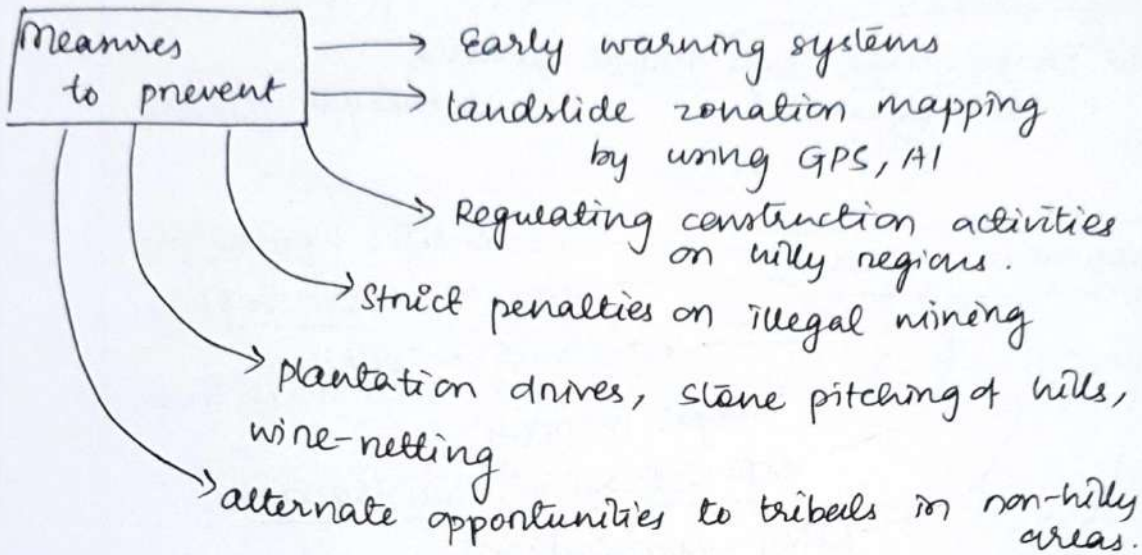 Measures
to prevent
Early warning systems
landslide zonation mapping
by using GPS, AI
Regulating construction activities
on hilly regions.
Strict penalties on illegal mining
plantation drives, stone pitching of hills,
wire-netting
alternate opportunities to tribals in non-hilly
areas.